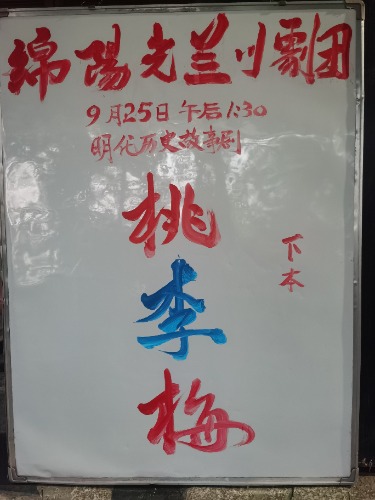 绵陽光兰川劇团
9月25日 午后1:30
明代历史故事剧
桃李梅
下本